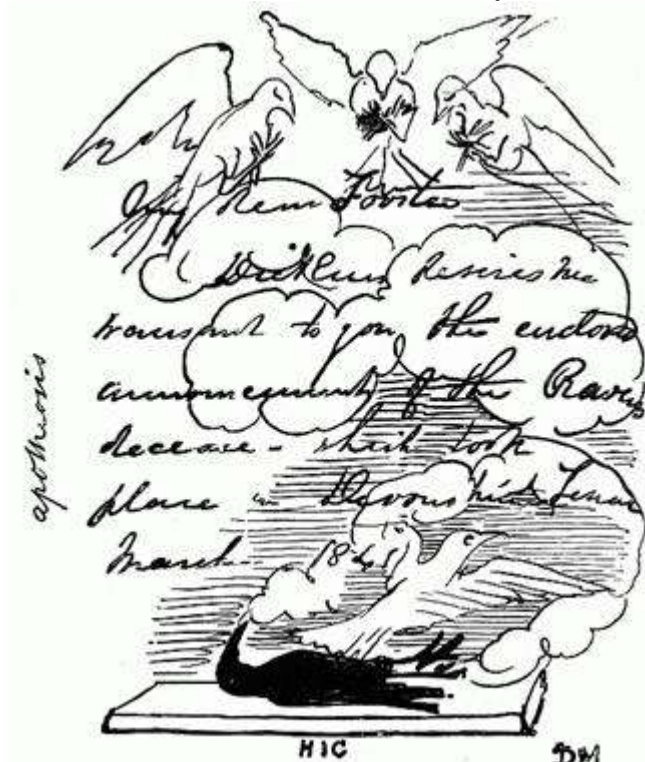 My dear Forster
Dickens desires me
transmit to you the enclosed
announcement of the Raven's
decease - which took
place in Devonshire Terrace
March 184
apotheosis
HIC
DM